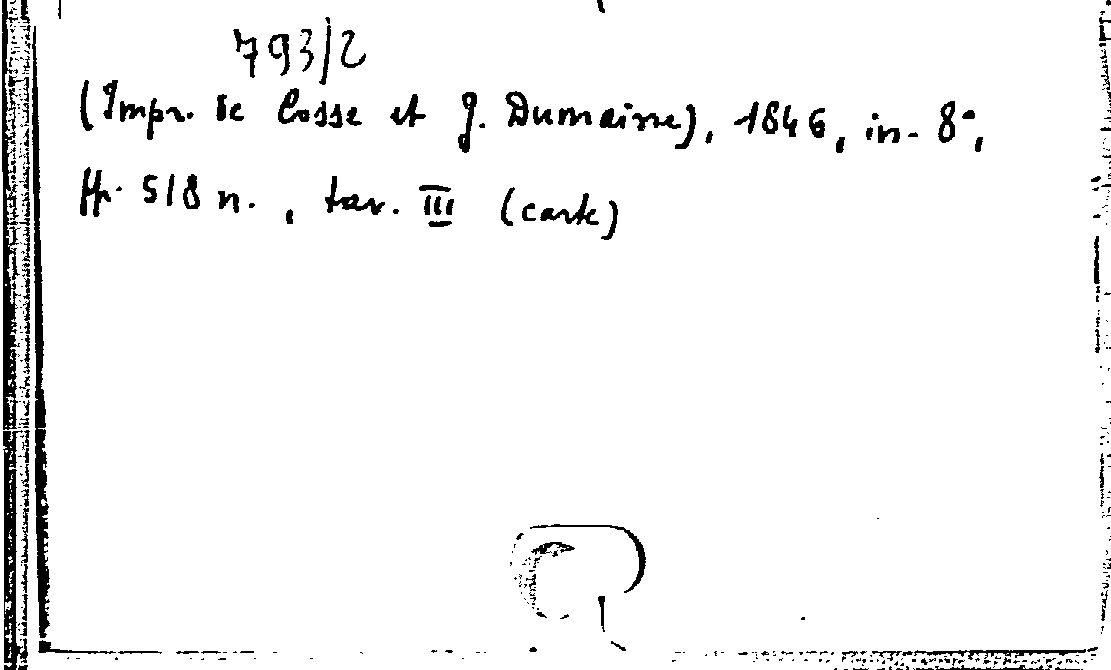 793/2
(Impr. de Cosse et J. Dumaine), 1846, in-8°,
pp. 518 n., tav. III (carte)